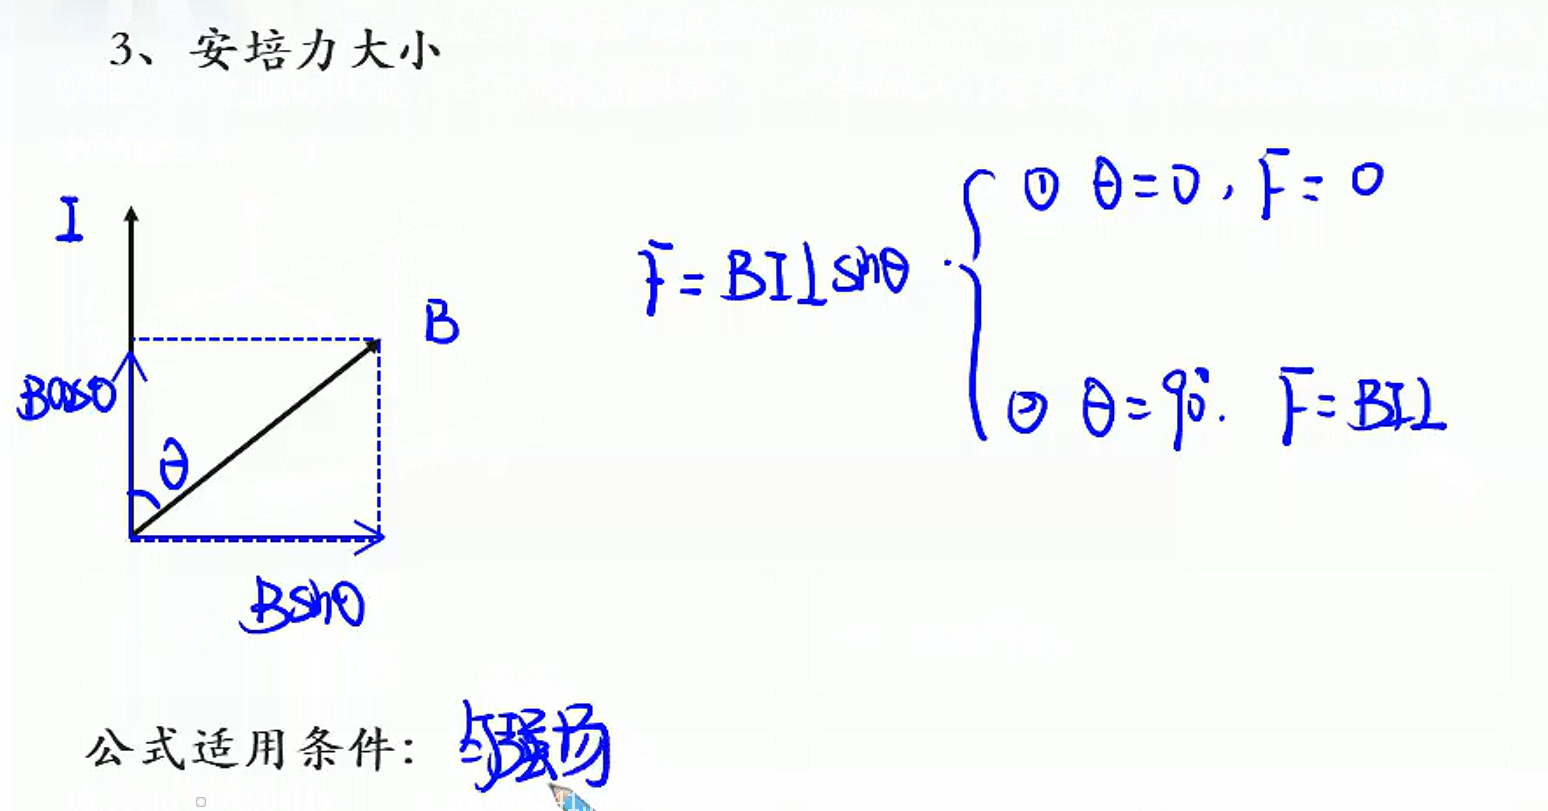 3、安培力大小
I
B
Bcosθ
θ
Bsinθ
F=BILsinθ
① θ=0,F=0
② θ=90°. F=BIL
公式适用条件：匀强场